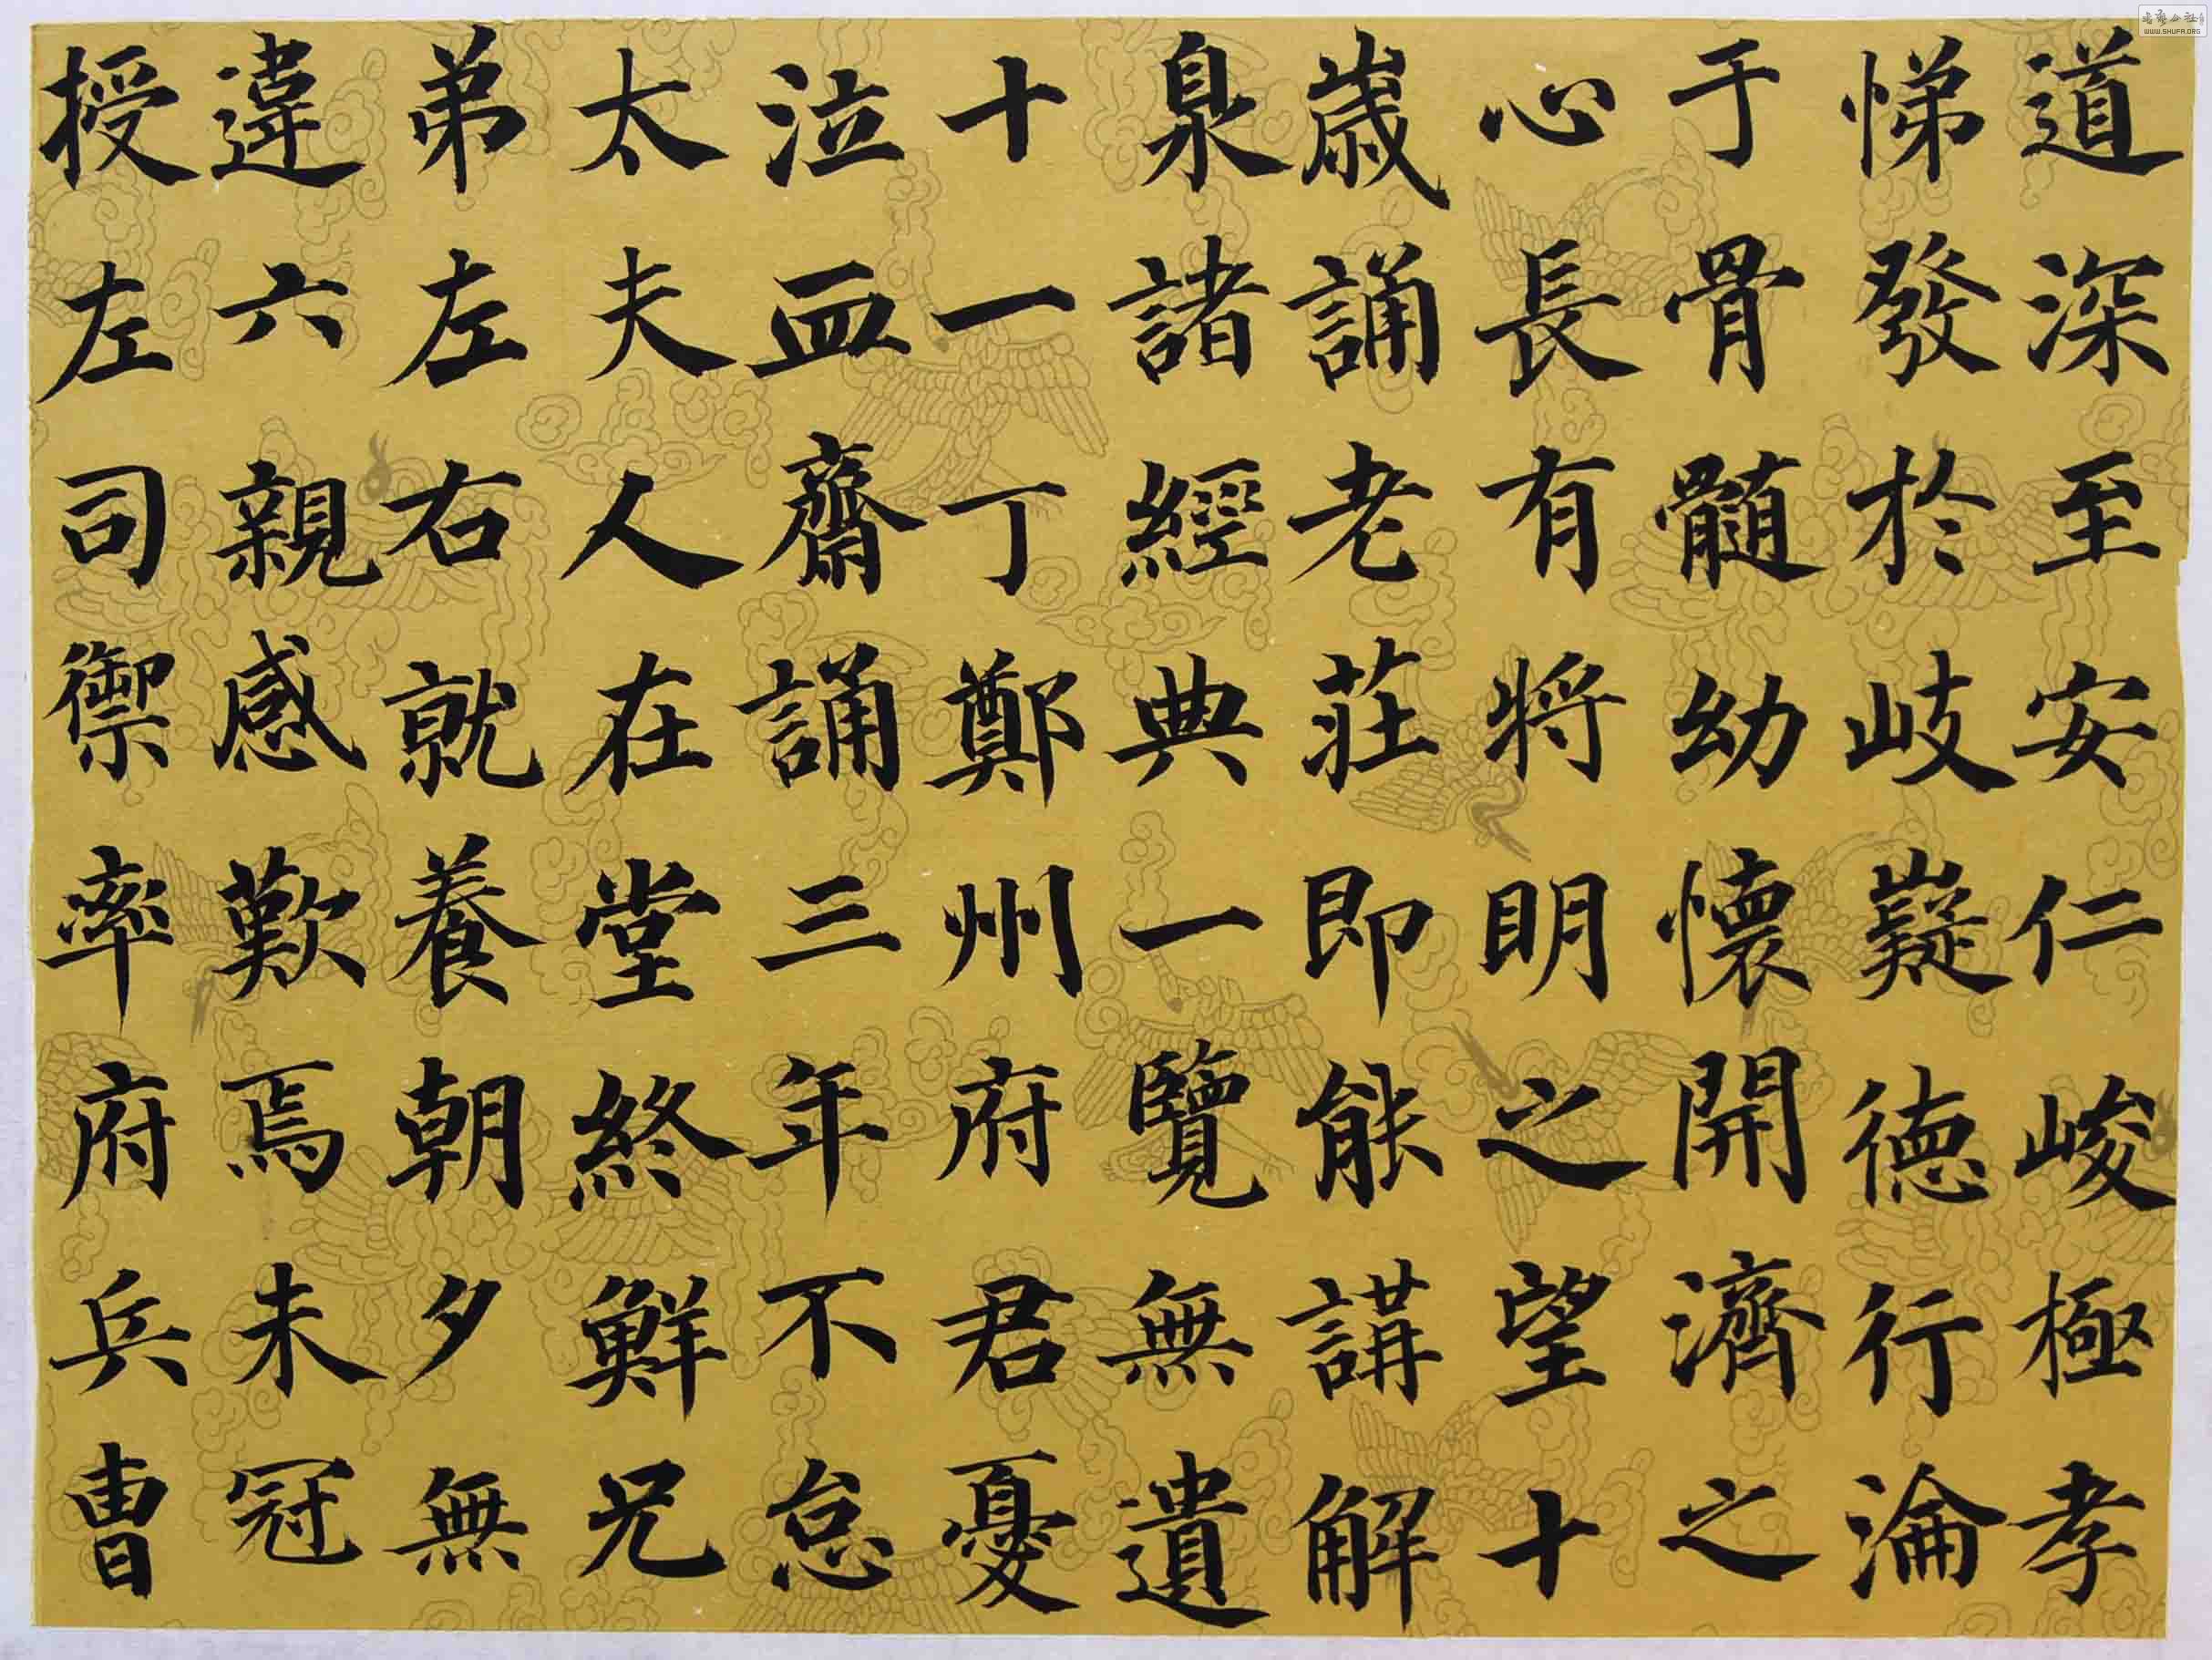 道深至安仁峻極孝
悌發於岐嶷德行淪
于骨髓幼懷開濟之
心長有將明之望十
歲誦老莊即能講解
泉諸經典一覽無遺
十一丁鄭州府君憂
泣血齋誦三年不怠
太夫人在堂終鮮兄
弟左右就養朝夕無
違六親感歎焉未冠
授左司禦率府兵曹
WWW.SHUFA.ORG